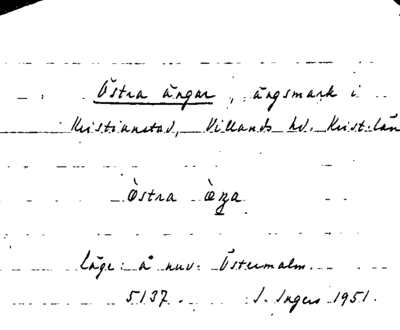 Östra ängar, ängsmark i
Kristianstad, Villands hd. Krist: län
Òstra òŋa
Läge: å nuv. Östermalm.
5137. I. Ingers 1951.